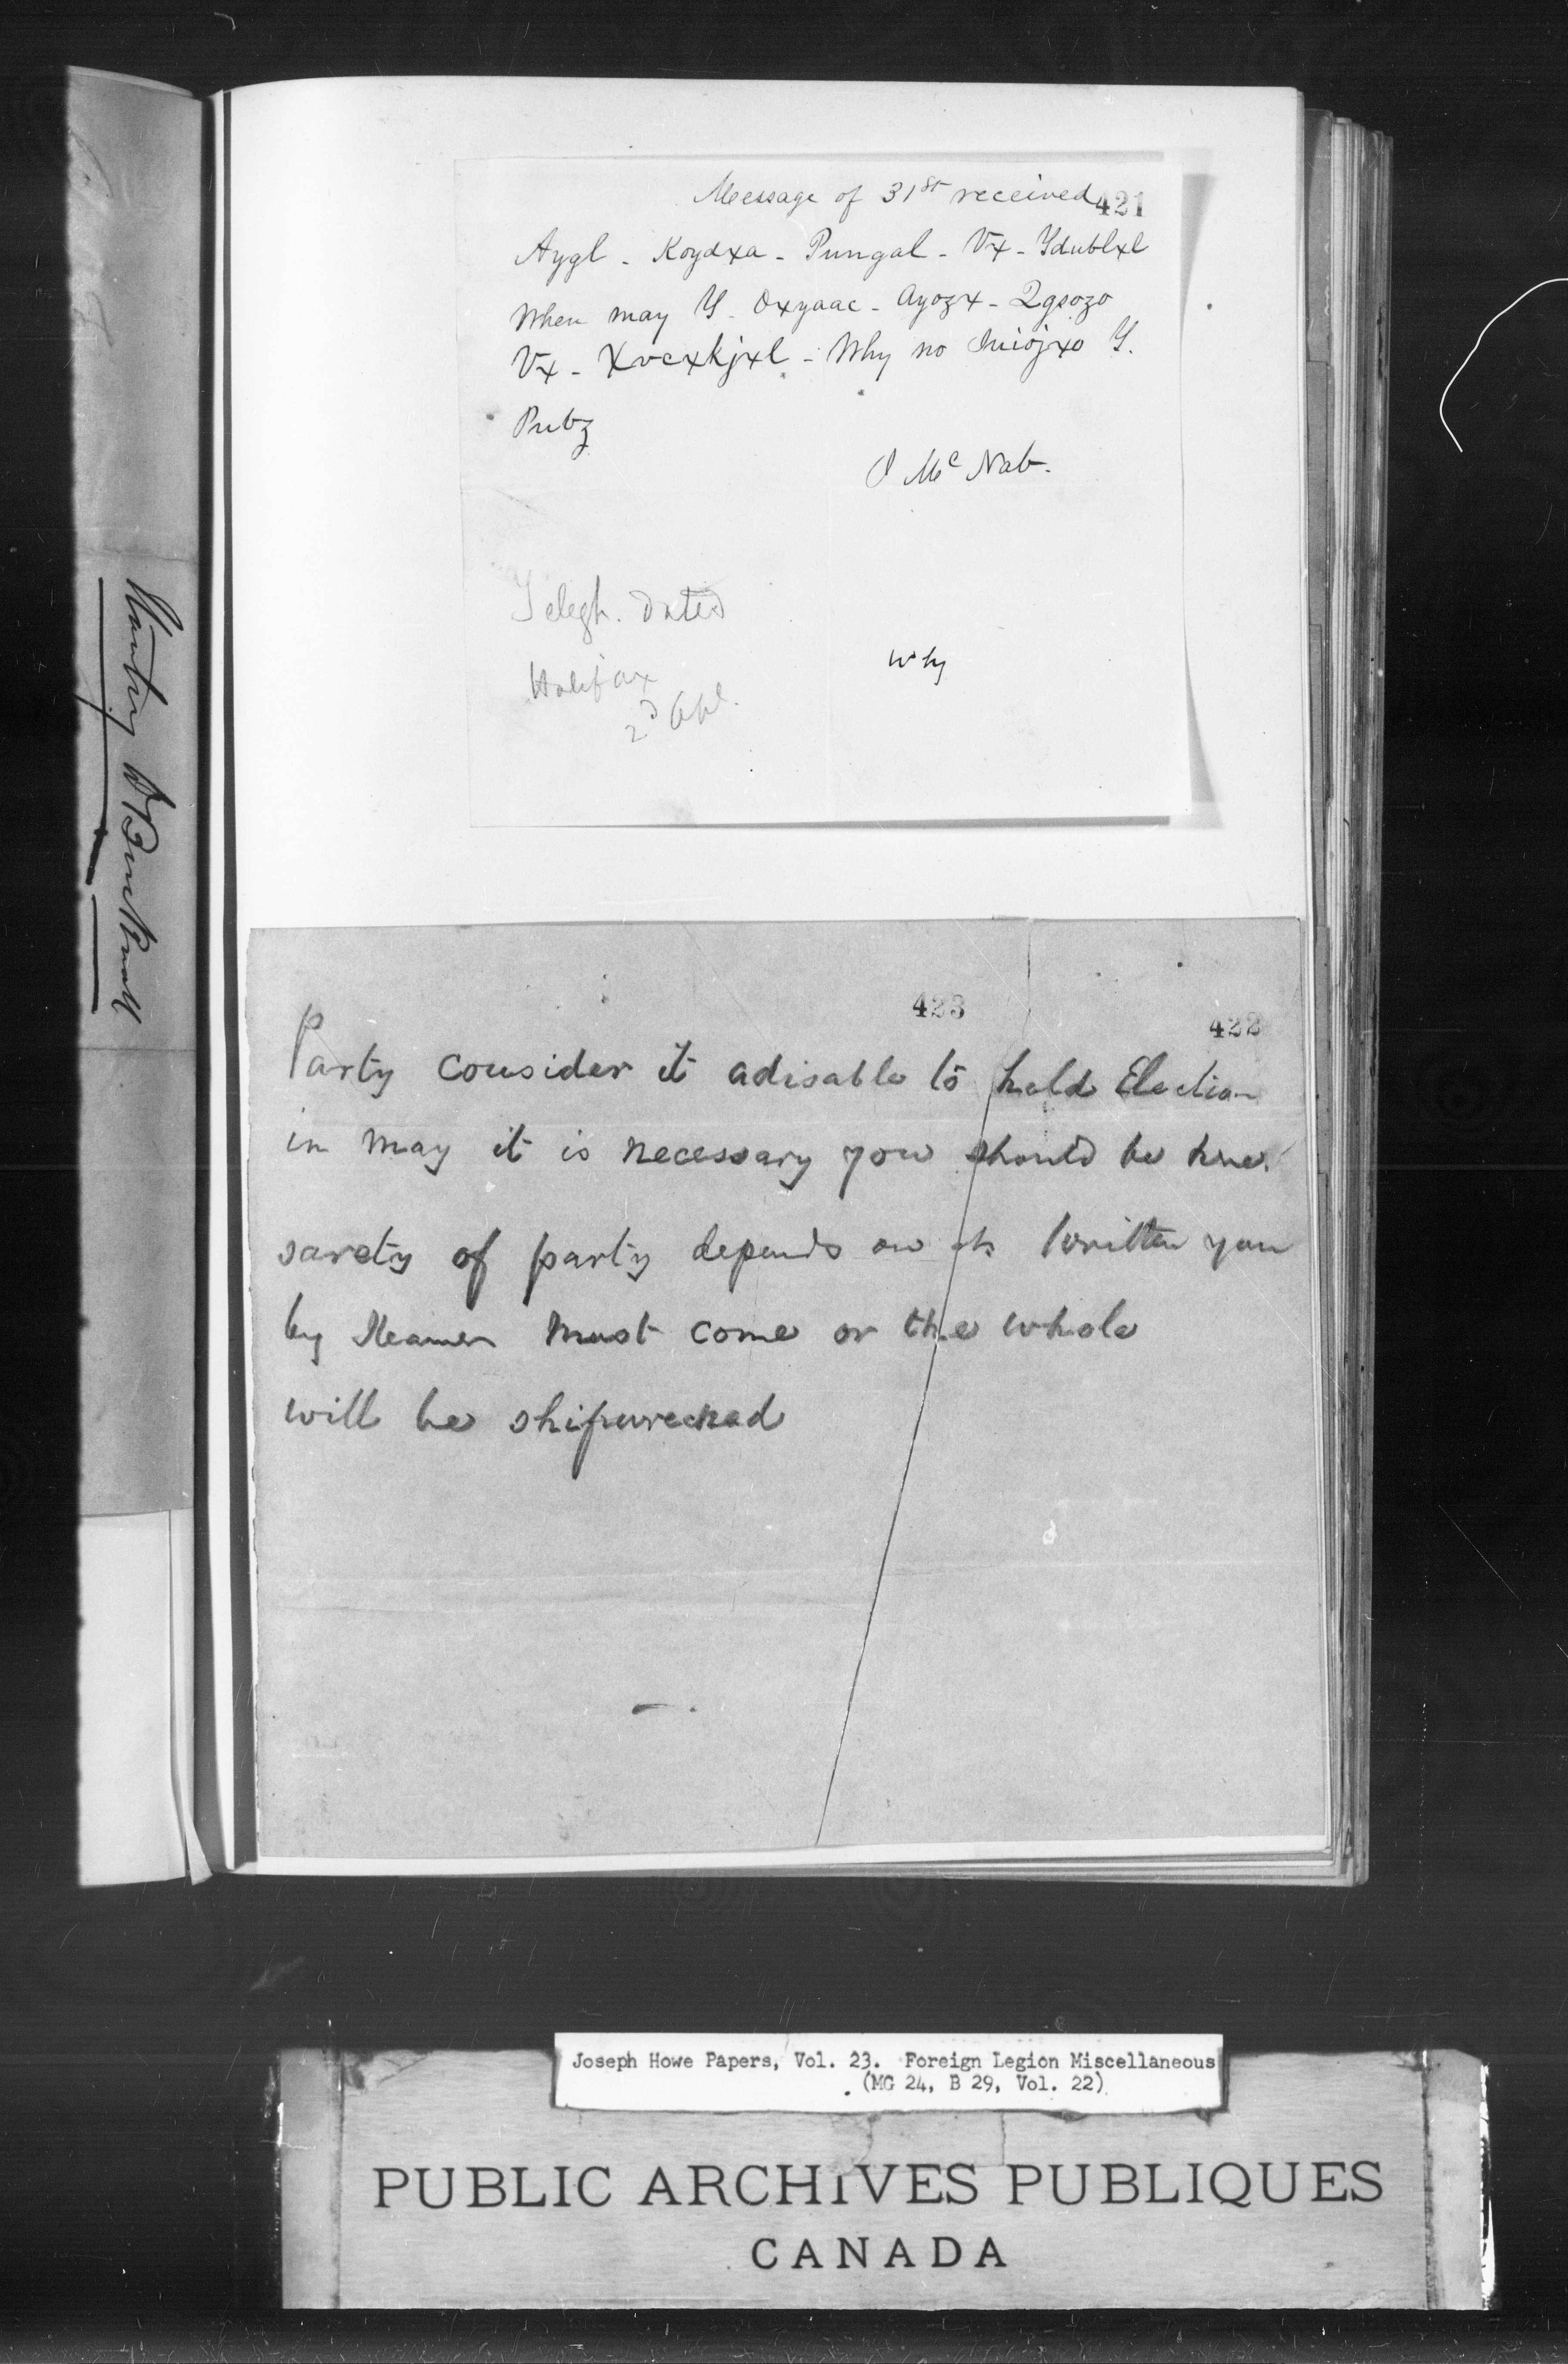 Message of 31st received
421
Aygl - Koydxa - Pungal - Vx - Ydublxl
When may Y - Oxyaac - Ayozx - Qgsozo
Vx - Xvcxkjxl - Why no Y.
Pubz
McNab.
Telegh. Dated
Halifax
2d Apl.
Why
423
422
Party consider it adisable to hold Election
in May it is necessary you should be here
sarety of party depends on it Written you
by Steamer must come or the whole
will be shipwrecked
Joseph Howe Papers, Vol. 23. Foreign Legion Miscellaneous
(MG 24, B 29, Vol. 22)
PUBLIC ARCHIVES PUBLIQUES
CANADA